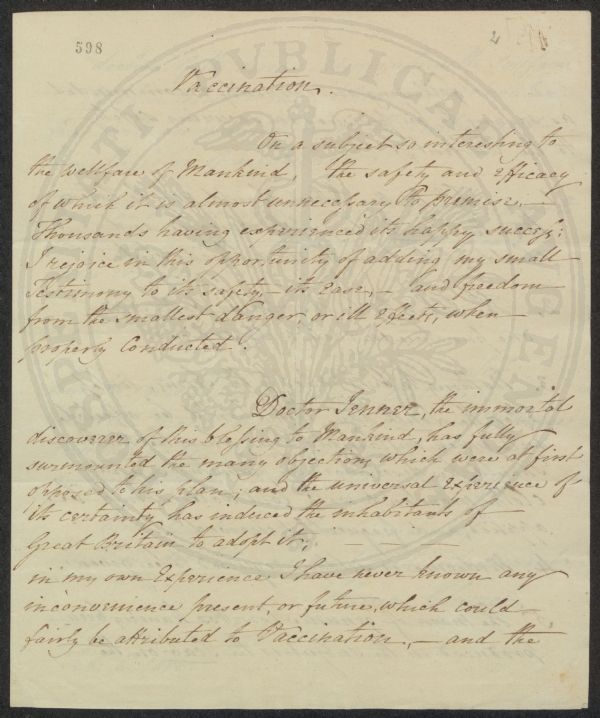 598
2
Vaccination.
On a subject so interesting to
the wellfare of Mankind, the safety and Efficacy
of which it is almost unnecessary to premise, —
Thousands having experienced its happy success;
I rejoice in this opportunity of adding my small
Testimony to its safety, — its Ease, — and freedom
from the smallest danger, or ill Effects, when
properly Conducted.
Doctor Jenner, the immortal
discoverer of this blessing to Mankind, has fully
surmounted the many objections which were at first
opposed to his plan; and the universal Experience of
its certainty has induced the inhabitants of
Great Britain to adopt it; — — —
in my own Experience I have never known any
inconvenience present, or future, which could
fairly be attributed to Vaccination, — and the